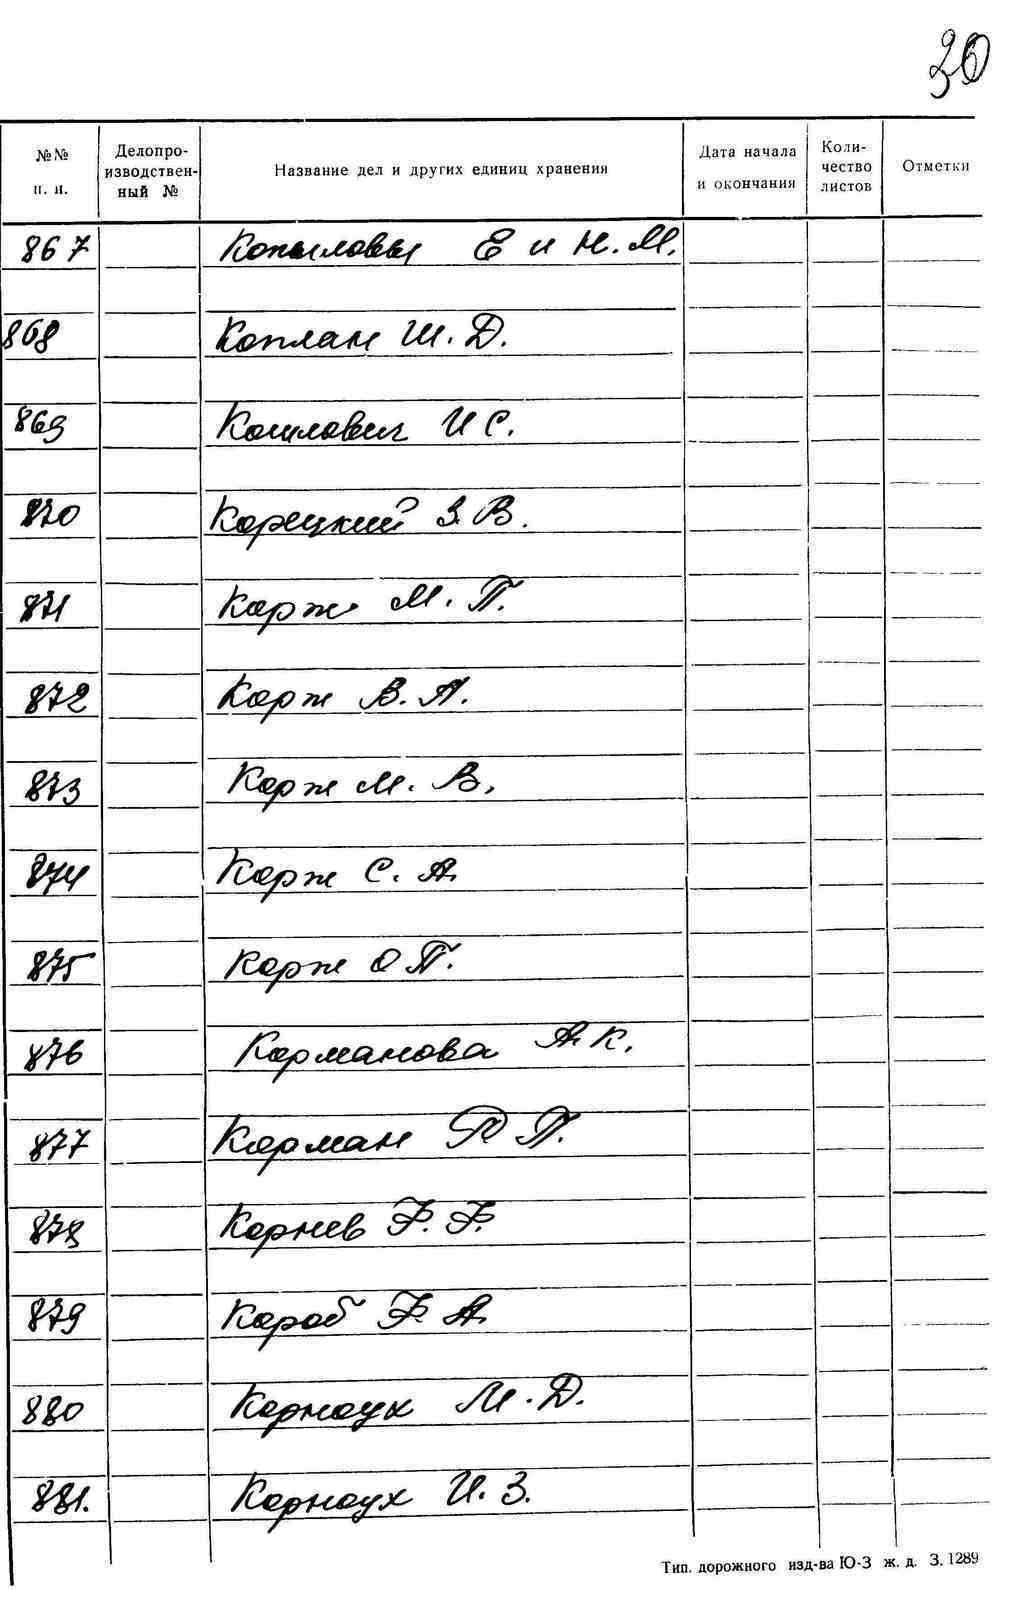 30
№№ п. п. Делопроизводственный № Название дел и других единиц хранения Дата начала и окончания Количество листов Отметки
867 Копыловы Е и Н. М.
868 Коплан Ш. Д.
869 И С.
870 Корецкий З. В.
871 Корж М. П.
872 Корж В. А.
873 Корж М. В.
874 Корж С. А.
875 Корж О П.
876 Корманова А. К.
877 Корман Р П.
878 Корнев Ф. Ф.
879 Короб Ф. А.
880 Корноух М. Д.
881. Корноух И. З.
Тип. дорожного изд-ва Ю-З ж. д. З. 1289